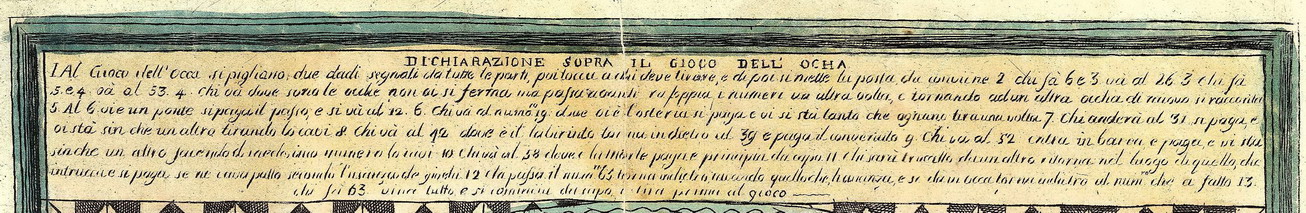 DICHIARAZIONE SOPRA IL GIOCO DELL' OCHA
1 Al Gioco dell' occa si pigliano due dadi segnati da tutte le parti, poi tocca a chi deve tirare, e di poi si mette la posta che conviene 2 chi fà 6 e 3 và al 26. 3 chi fà
5. e 4 và al 53. 4. chi và dove sono le ocche non vi si ferma ma passa avanti raddoppia i numeri un altra volta, e tornando ad un altra ocha di nuovo si racconta
5. Al 6 vie un ponte si paga il passo, e si và al 12. 6. chi và al numo 19. dove vi è l'osteria si paga e vi si stà tanto che ognuno tira una volta 7. chi anderà al 31 si paga, e
vi stà sin che un altro tirando lo cavi 8. chi và al 42 dove è il labirinto torna indietro al 39 e paga il convenuto 9. Chi và al 52 entra in barca, e paga, e vi sta
sinche un altro facendo il medesimo numero lo cavi 10 Chi và al 58 dove è la morte paga e principia da capo. 11 Chi sarà truccato da un altro ritorna nel luogo di quello, che
si paga se ne caso patto secondo l'usanza de giochi 12 chi passa il num° 63 torna indietro, quello che, avanza, e se dà in occa torna indietro al num° che a fatto 13.
chi fa 63 vince tutto, e si comincia da capo, e tira prima al gioco